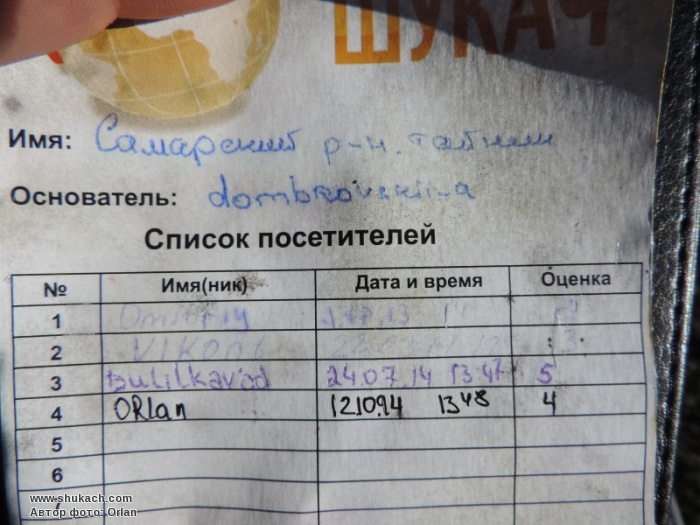 ШУКАЧ
Имя: Самарский р-н. тайник
Основатель: dombrovskii-a
Список посетителей
№ Имя(ник) Дата и время Оценка
1 Dmitriy
2 Vikont
3 bulilkavod 24.07.14 13:47 5
4 ORlan 121094 1348 4
5
6
7
www.shukach.com
Автор фото: Orlan